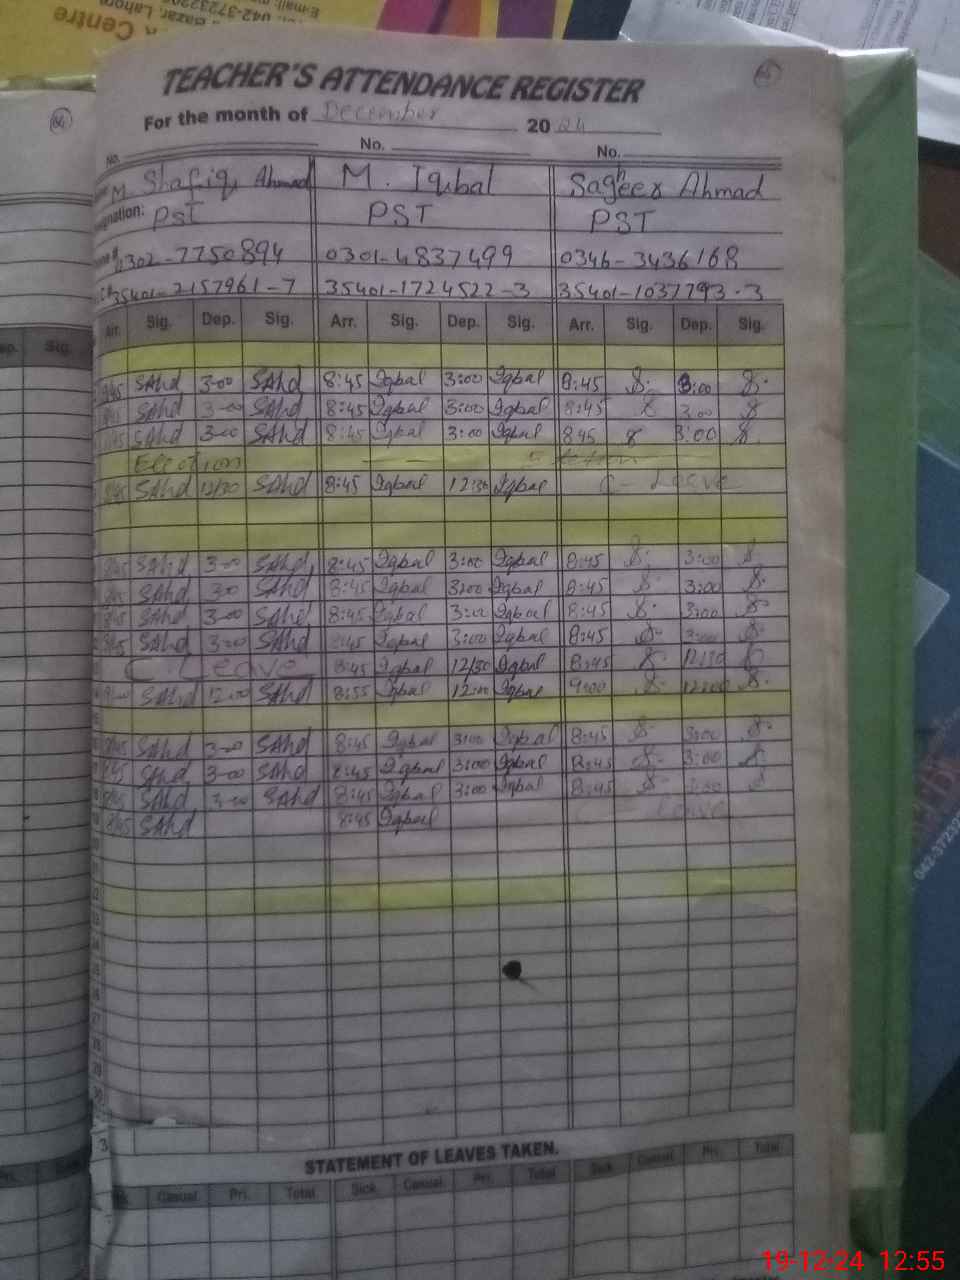 Centre
Bazar, Lahor
042-3723220
E-mail:
TEACHER'S ATTENDANCE REGISTER
For the month of December 2024
No. No. No.
M. Shafiq Ahmad M. Iqbal Sagheer Ahmad
Designation: PST PST PST
0302-7750894 0301-4837499 0346-3436168
35401-2157961-7 35401-1724522-3 35401-1037793-3
Dep. Sig. Arr. Sig. Dep. Sig. Arr. Sig. Dep. Sig. Arr. Sig. Dep. Sig.
8:45 SAhd 3-00 SAhd 8:45 Iqbal 3:00 Iqbal 8:45 S. 3:00 S.
8:45 SAhd 3-00 SAhd 8:45 Iqbal 3:00 Iqbal 8:45 S 3:00 S
8:45 SAhd 3-00 SAhd 8:45 Iqbal 3:00 Iqbal 845 S 3:00 S.
Election
8:45 SAhd 12/30 SAhd 8:45 Iqbal 12:30 Iqbal C- Leave
8:45 SAhd 3-00 SAhd 8:45 Iqbal 3:00 Iqbal 8:45 S. 3:00 S.
8:45 SAhd 3-00 SAhd 8:45 Iqbal 3:00 Iqbal 8:45 S. 3:00 S.
8:45 SAhd 3-00 SAhd 8:45 Iqbal 3:00 Iqbal 8:45 S. 3:00 S.
8:45 SAhd 3-00 SAhd 8:45 Iqbal 3:00 Iqbal 8:45 S. 3:00 S.
C. Leave 8:45 Iqbal 12/30 Iqbal 8:45 S. 12:30 S
SAhd 12:00 SAhd 8:55 Iqbal 12:00 Iqbal 9:00 S. 12:00 S.
8:45 SAhd 3-00 SAhd 8:45 Iqbal 3:00 Iqbal 8:45 S. 3:00 S.
8:45 SAhd 3-00 SAhd 8:45 Iqbal 3:00 Iqbal 8:45 S. 3:00 S
8:45 SAhd 3-00 SAhd 8:45 Iqbal 3:00 Iqbal 8:45 S. 3:00 S
8:45 SAhd 8:45 Iqbal Leave
STATEMENT OF LEAVES TAKEN.
Casual Pri. Total Sick Casual Pri. Total Sick Casual Pri. Total
042-3723
19-12-24 12:55